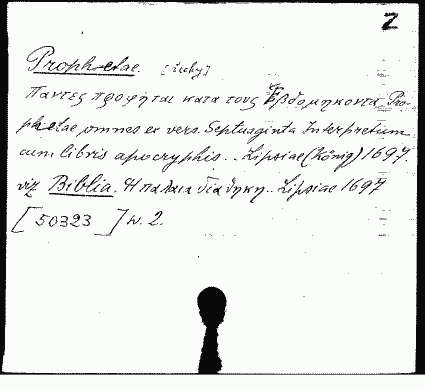 2
Prophetae. [řecky]
Παντες προφήται κατα τους Ἑβδομηκοντα, Pro-
phetae omnes ex vers. Septuaginta Interpretum
cum libris apocryphis.. Lipsiae (König) 1697.
viz Biblia. Η παλαια διαθηκη.. Lipsiae 1697
[50323] w. 2.